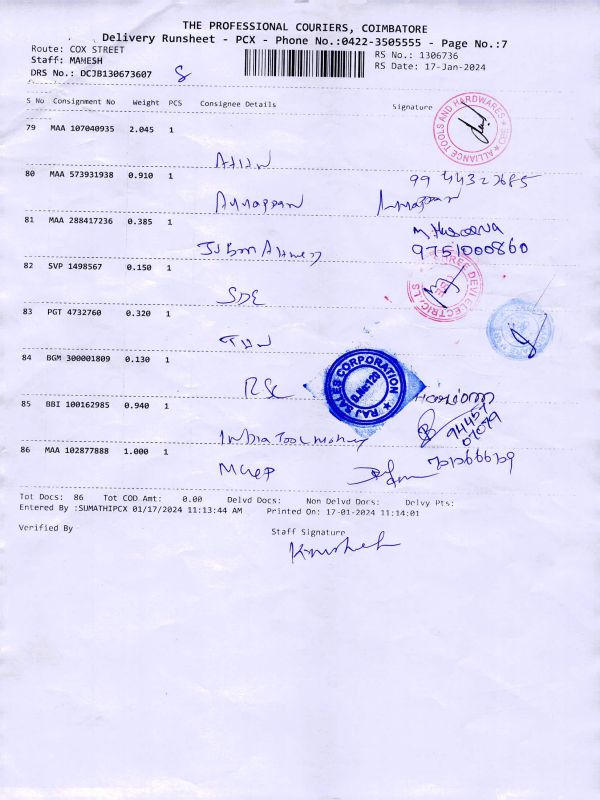 THE PROFESSIONAL COURIERS, COIMBATORE
Delivery Runsheet - PCX - Phone No.:0422-3505555 - Page No.:7
Route: COX STREET
RS No.: 1306736
Staff: MAMESH
RS Date: 17-Jan-2024
DRS No.: DCJB130673607
S No Consignment No Weight PCS Consignee Details Signature
ALLIANCE TOOLS AND HARDWARES
79 MAA 107040935 2.045 1
80 MAA 573931938 0.910 1
81 MAA 288417236 0.385 1
9751000860
82 SVP 1498567 0.150 1
SREE DEVI ELECTRICALS
SDE
83 PGT 4732760 0.320 1
84 BGM 300001809 0.130 1
RAJ SALES CORPORATION
RSC
85 BBI 100162985 0.940 1
India Tool
86 MAA 102877888 1.000 1
Tot Docs: 86 Tot COD Amt: 0.00 Delvd Docs: Non Delvd Docs: Delvy Pts:
Entered By :SUMATHIPCX 01/17/2024 11:13:44 AM Printed On: 17-01-2024 11:14:01
Verified By
Staff Signature